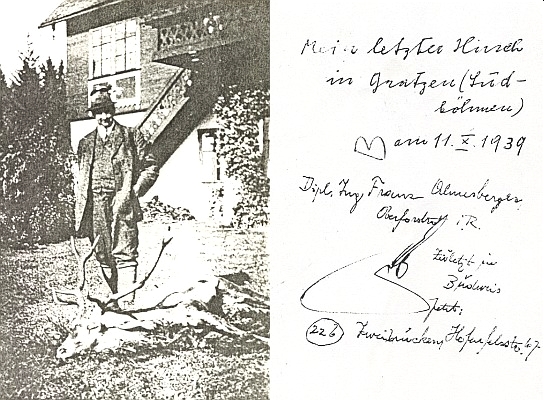 Mein letzter Hirsch
in Gratzen (Süd-
böhmen)
am 11. X. 1939
Dipl. Ing Franz Almesberger,
Oberforstrat i.R.
zuletzt in
Budweis
jetzt:
(22b) Zweibrücken,